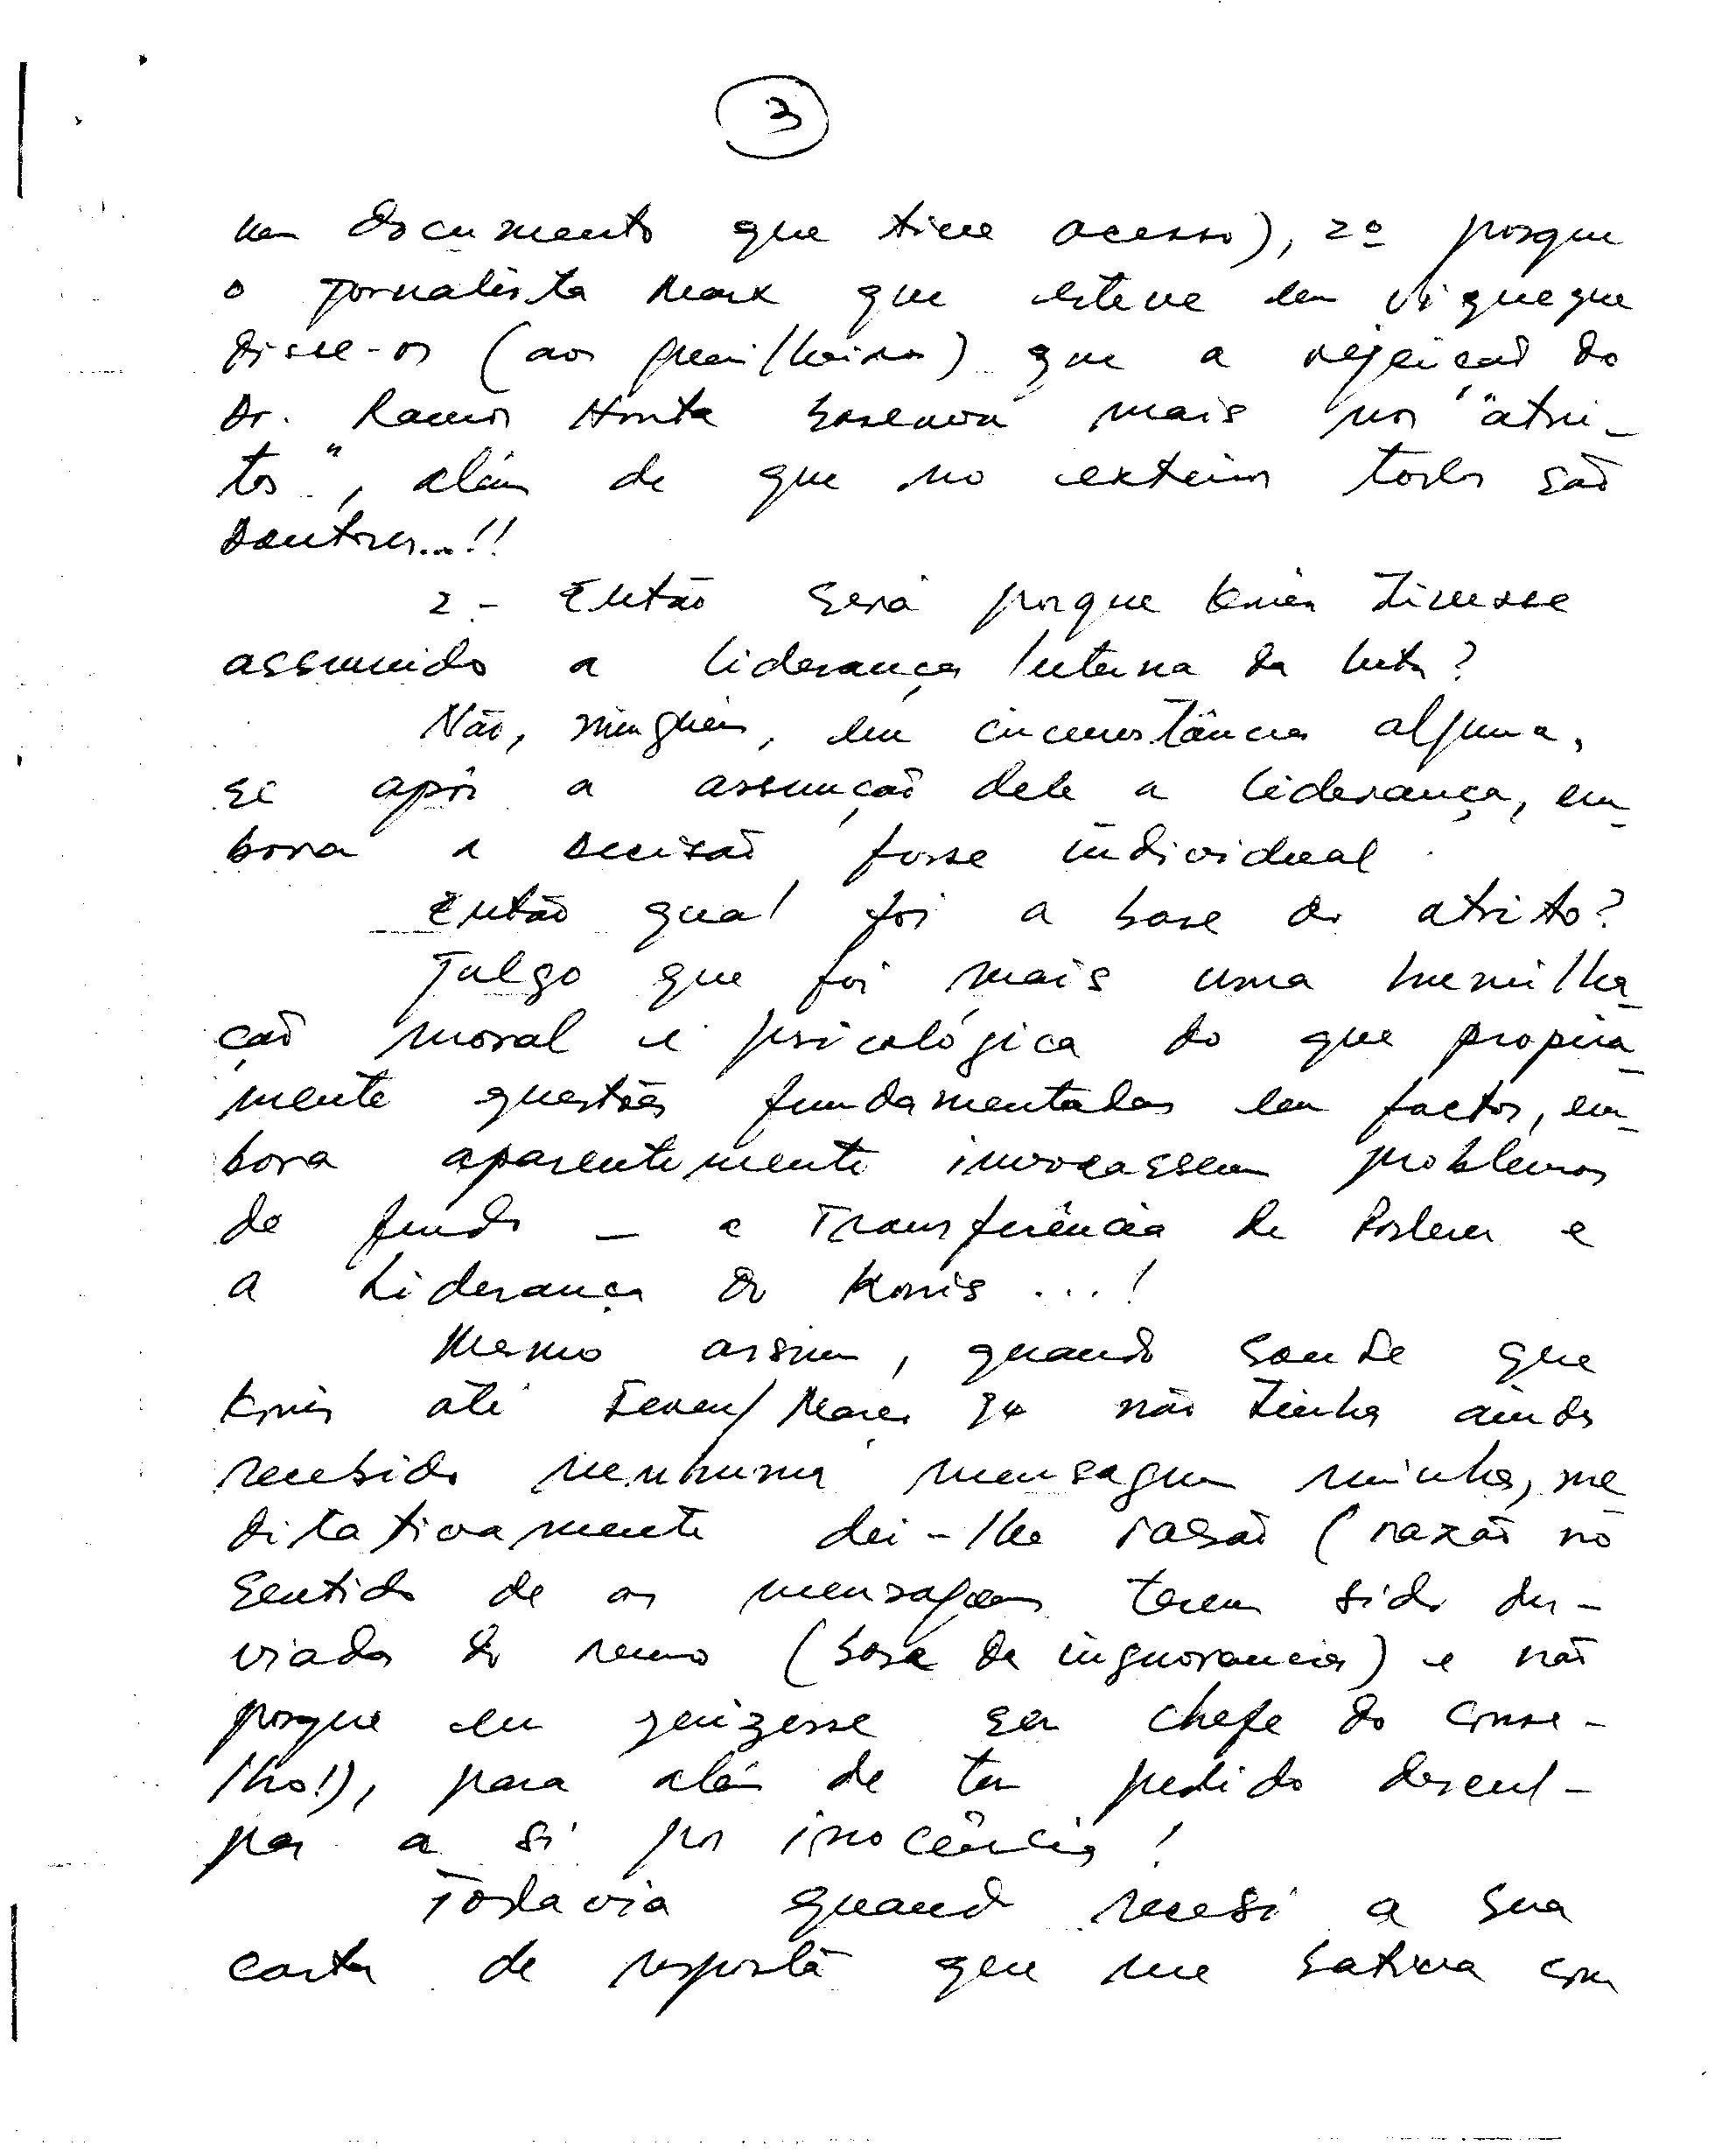 3
num documento que tive acesso), 2º porque
o jornalista Mark que esteve em Viqueque
disse-os (aos guerrilheiros) que a rejeição do
Dr. Ramos Horta baseava mais nos "atri-
tos", além de que no exterior todos são
Doutores...!!
2 - Então será porque Konis tivesse
assumido a liderança interna da luta?
Não, ninguém, em circunstância alguma,
se opôs a assunção dele a liderança, em-
bora a decisão fosse individual.
Então qual foi a base do atrito?
Julgo que foi mais uma humilha-
ção moral e psicológica do que propria-
mente questões fundamentadas em factos, em-
bora aparentemente invocassem problemas
de fundo - a Transferência de Poderes e
a Liderança do Konis ...!
Mesmo assim, quando soube que
Konis até Fever/Março 94 não tinha ainda
recebido nenhuma mensagem minha, me-
ditativamente dei-lhe rasão (razão no
sentido de as mensagens terem sido des-
viadas do rumo (base da inguorancia) e não
porque eu quizesse ser chefe do Conse-
lho!), para além de ter pedido descul-
pas a si por inocência!
Todavia quando recebi a sua
carta de resposta que me batera com